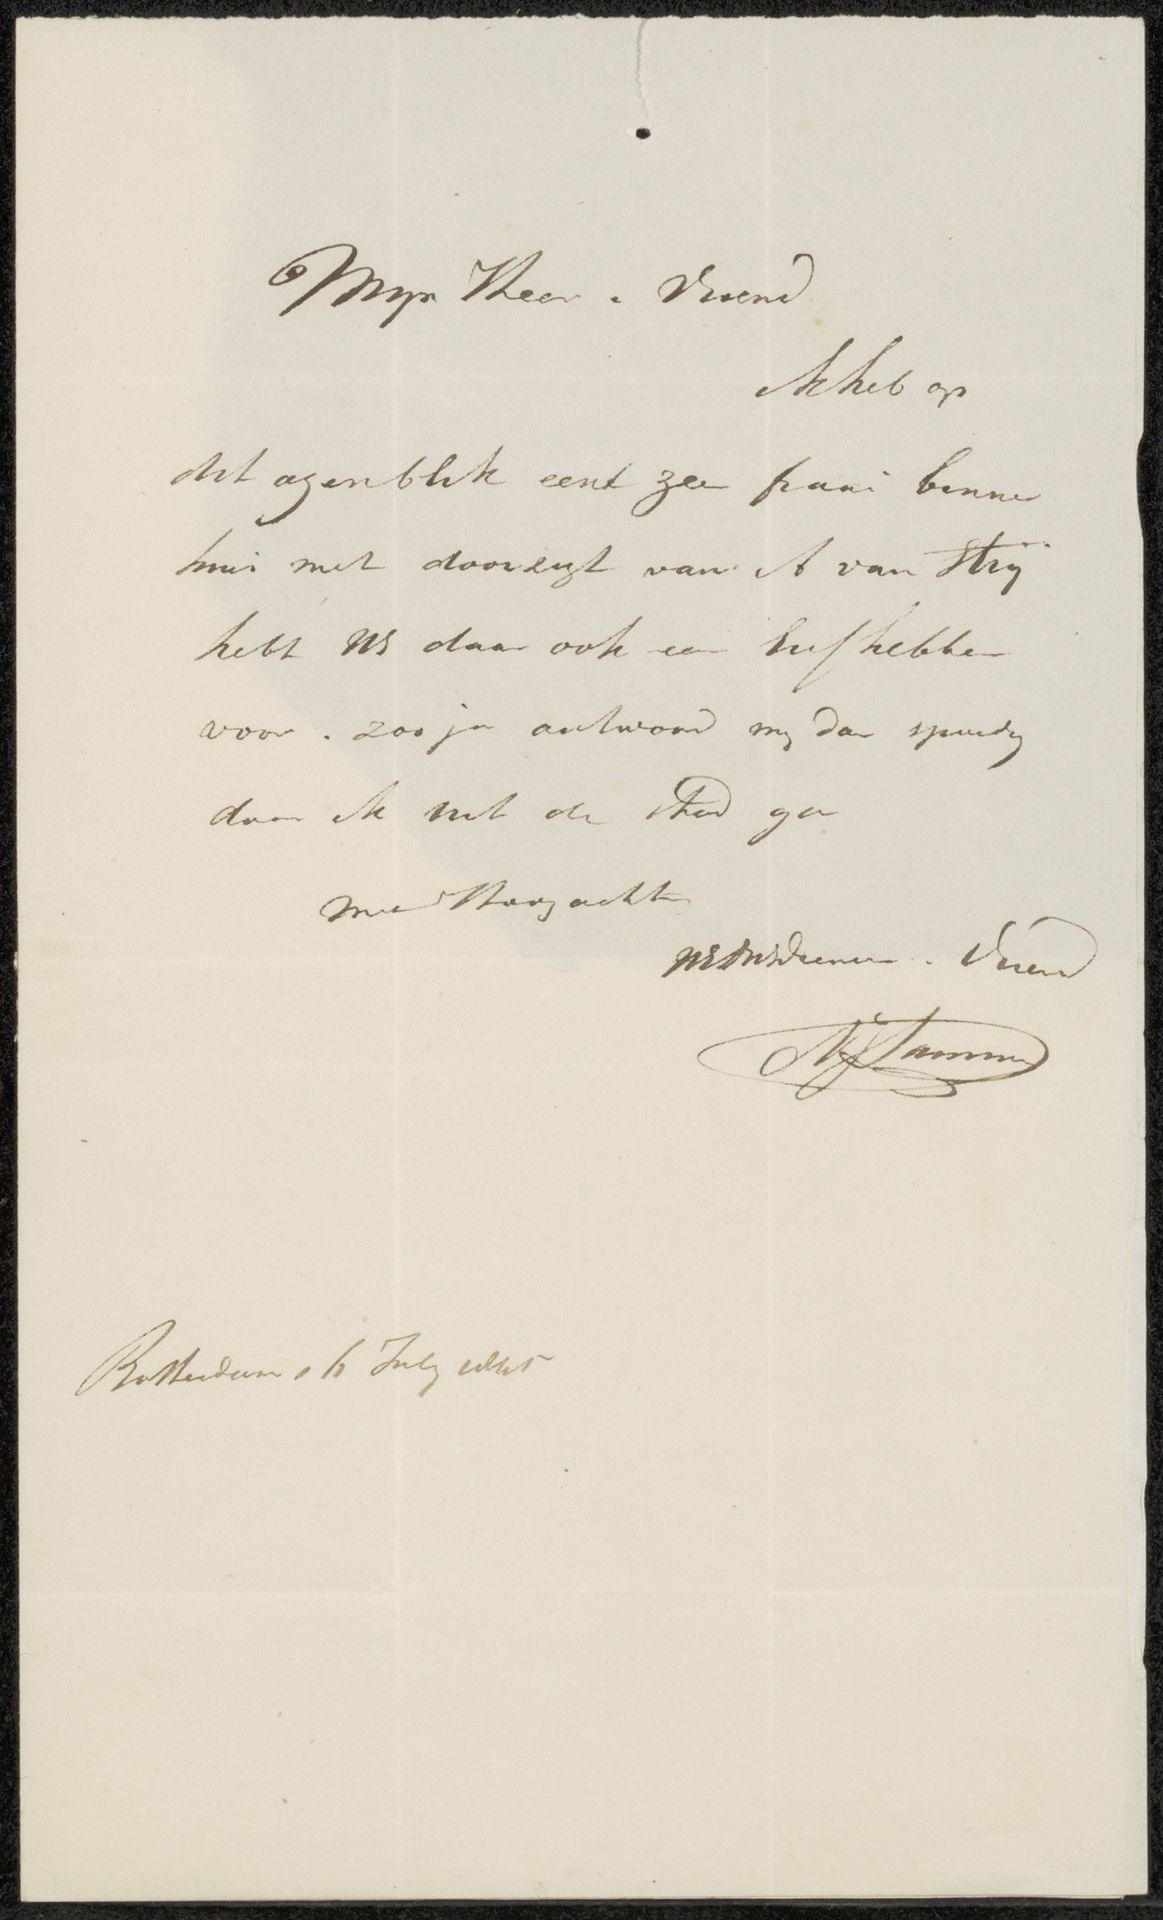 Mijn Heer. Vriend
Ik heb op
dit ogenblik eene zeer fraai binnen
huis met doorzigt van A van Strÿ
hebt UE daar ook een liefhebber
voor. zoo ja antwoord mij dan spoedig
daar ik uit de stad ga
met Hoogachting
UE Dienaar. Vriend
Lamme
Rotterdam July